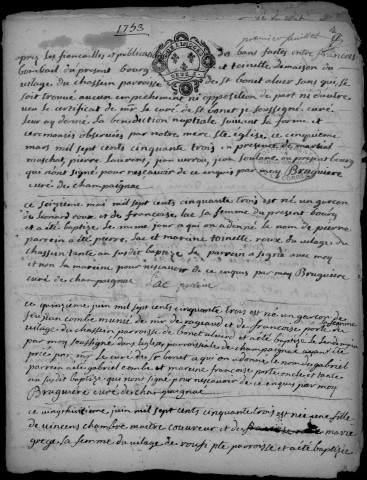 1753
premier feuillet
apres les fiançailles et publications de bans faites entre françois
bonbail du present bourg et toinette demaison du
village du chassein parroisse de st bonet aluer sans que se
soit trouvé aucun empechement ni opposition de part ni d'autre
veu le certificat de mr le curé de st bonet je soussigné curé
leur ay donné la benediction nuptiale suivant la forme et
ceremonies observées par notre mere ste eglise ce cinquieme
mars mil sept cents cinquante trois en presence de martial
machat, pierre laurent, jean soulane du present bourg
qui n'ont signé pour n'escavoir de ce enquis par moy Bruguiere
curé de champaignac
ce seizieme mai mil sept cents cinquante trois est né un garçon
de leonard roux et de françoise lac sa femme du present bourg
et a été baptizé le meme jour a qui on a donné le nom de pierre
parrein a été pierre lac et marrine toinette roux du vilage du
chassein tante au susdit baptizé le parrein a signé avec moy
et non la marine pour n'escavoir de ce enquis par moy Bruguiere
curé de champaignac
lac parrein
ce quinzieme juin mil sept cents cinquante trois est né un garçon de
jean combe de mr de et de françoise porte sa femme
vilage du chassein parroisse de bonet aluer et a été baptizé le lendemain
par moy soussigné dans l'eglise parroissiale de champaignac ayant été
par mr le curé de st bonet a qui on a donné le nom de gabriel
parrein a été gabriel combe et marene françoise porte oncle et tante
au susdit baptizé qui n'ont signé pour n'escavoir de ce enquis par moy
Bruguiere curé de champaignac
ce vingthuitieme juin mil sept cents cinquante trois est née une fille
de vincens chambre maitre couvreur et de marie
grege sa femme du vilage de roufi pte parroisse et a été baptizée